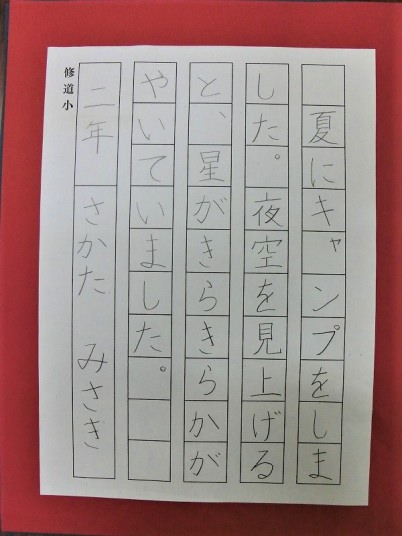 夏にキャンプをしま
した。夜空を見上げる
と、星がきらきらかが
やいていました。
二年 さかた みさき
修道小